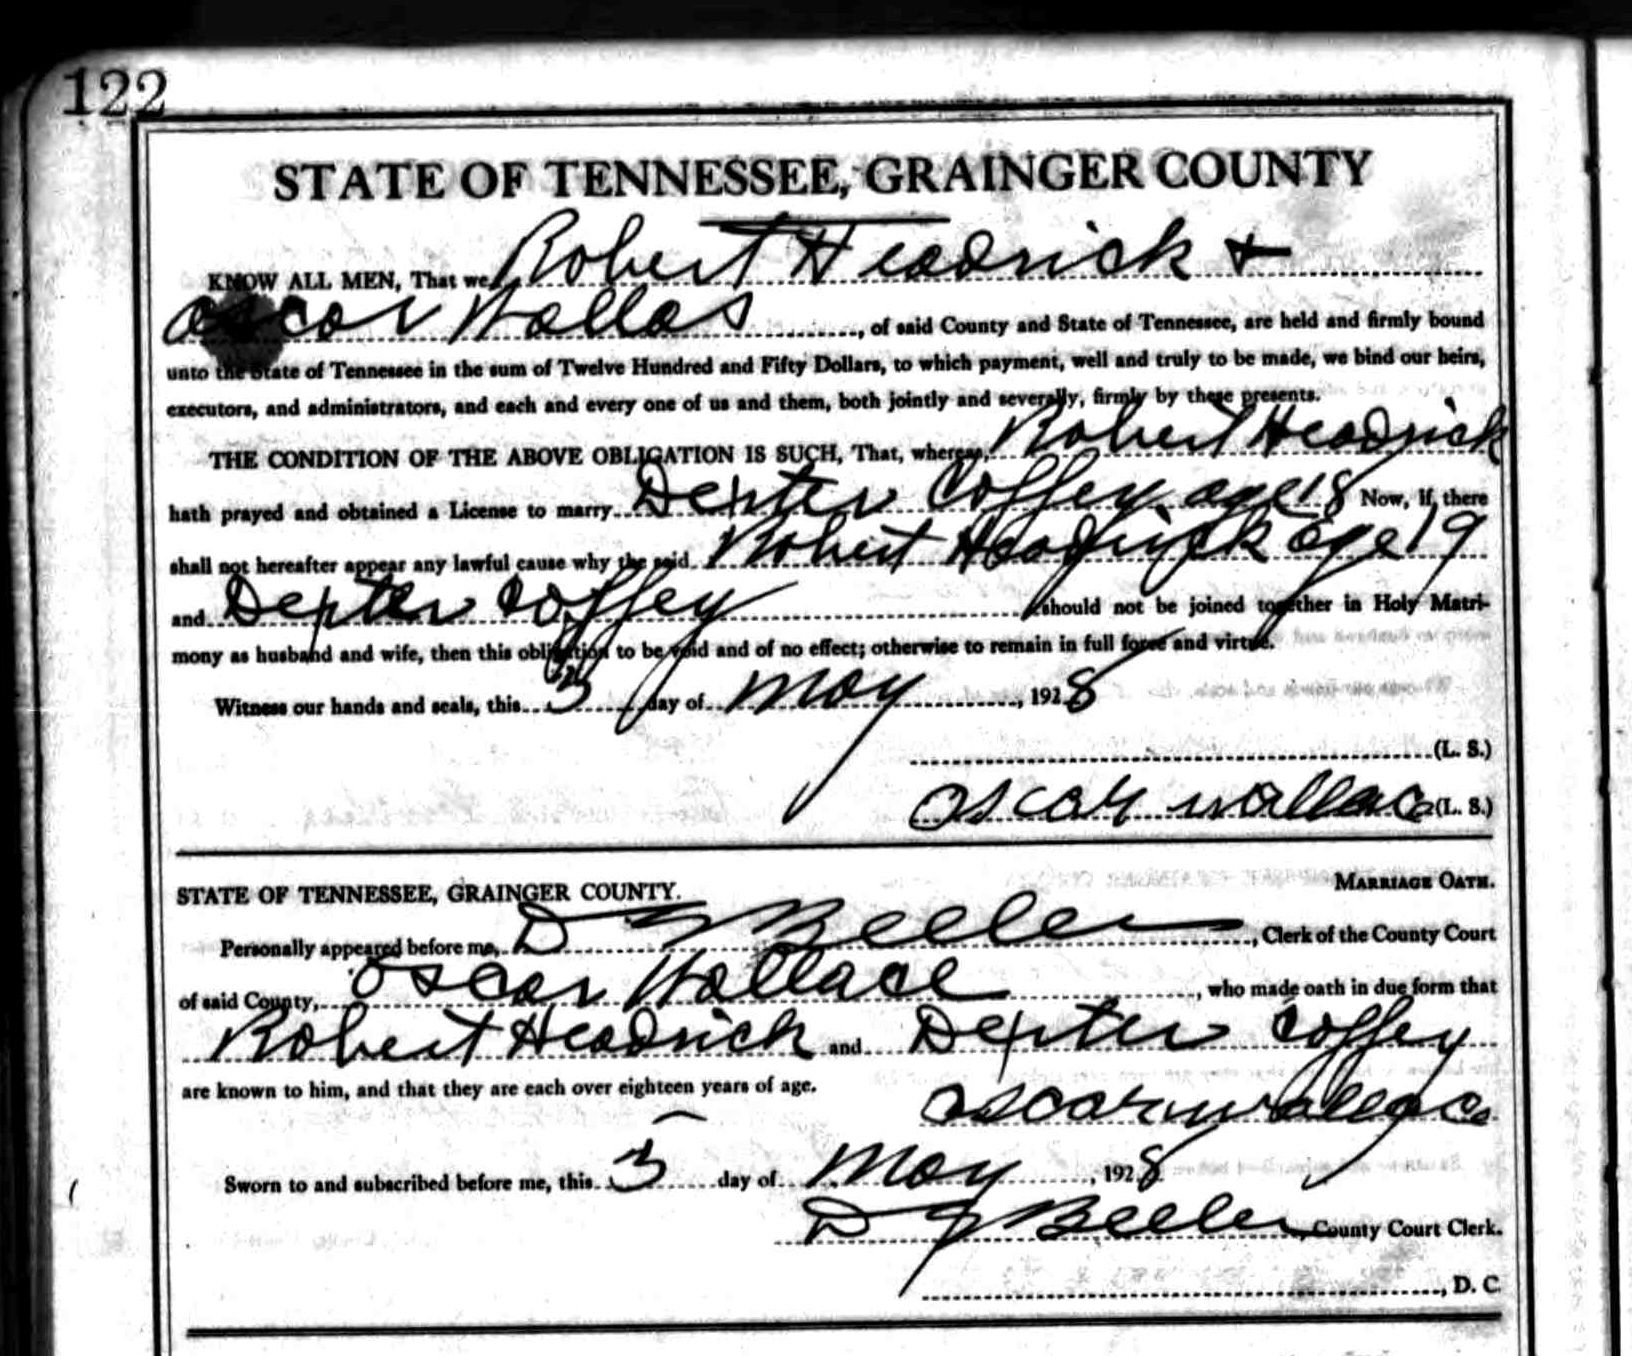 122
STATE OF TENNESSEE, GRAINGER COUNTY
KNOW ALL MEN, That we Robert Headrick +
Oscar Wallas, of said County and State of Tennessee, are held and firmly bound
unto the State of Tennessee in the sum of Twelve Hundred and Fifty Dollars, to which payment, well and truly to be made, we bind our heirs,
executors, and administrators, and each and every one of us and them, both jointly and severally, firmly by these presents.
THE CONDITION OF THE ABOVE OBLIGATION IS SUCH, That, whereas, Robert Headrick
hath prayed and obtained a License to marry Dexter Coffey age 18 Now, If, there
shall not hereafter appear any lawful cause why the said Robert Headrick age 19
and Dexter Coffey should not be joined together in Holy Matri-
mony as husband and wife, then this obligation to be void and of no effect; otherwise to remain in full force and virtue.
Witness our hands and seals, this 3 day of May, 1928
(L. S.)
oscar wallace (L. S.)
STATE OF TENNESSEE, GRAINGER COUNTY. MARRIAGE OATH.
Personally appeared before me, D G Beeler, Clerk of the County Court
of said County, Oscar Wallace, who made oath in due form that
Robert Headrick and Dexter Coffey
are known to him, and that they are each over eighteen years of age.
oscar wallace
Sworn to and subscribed before me, this 3 day of May, 1928
D G Beeler, County Court Clerk.
, D. C.